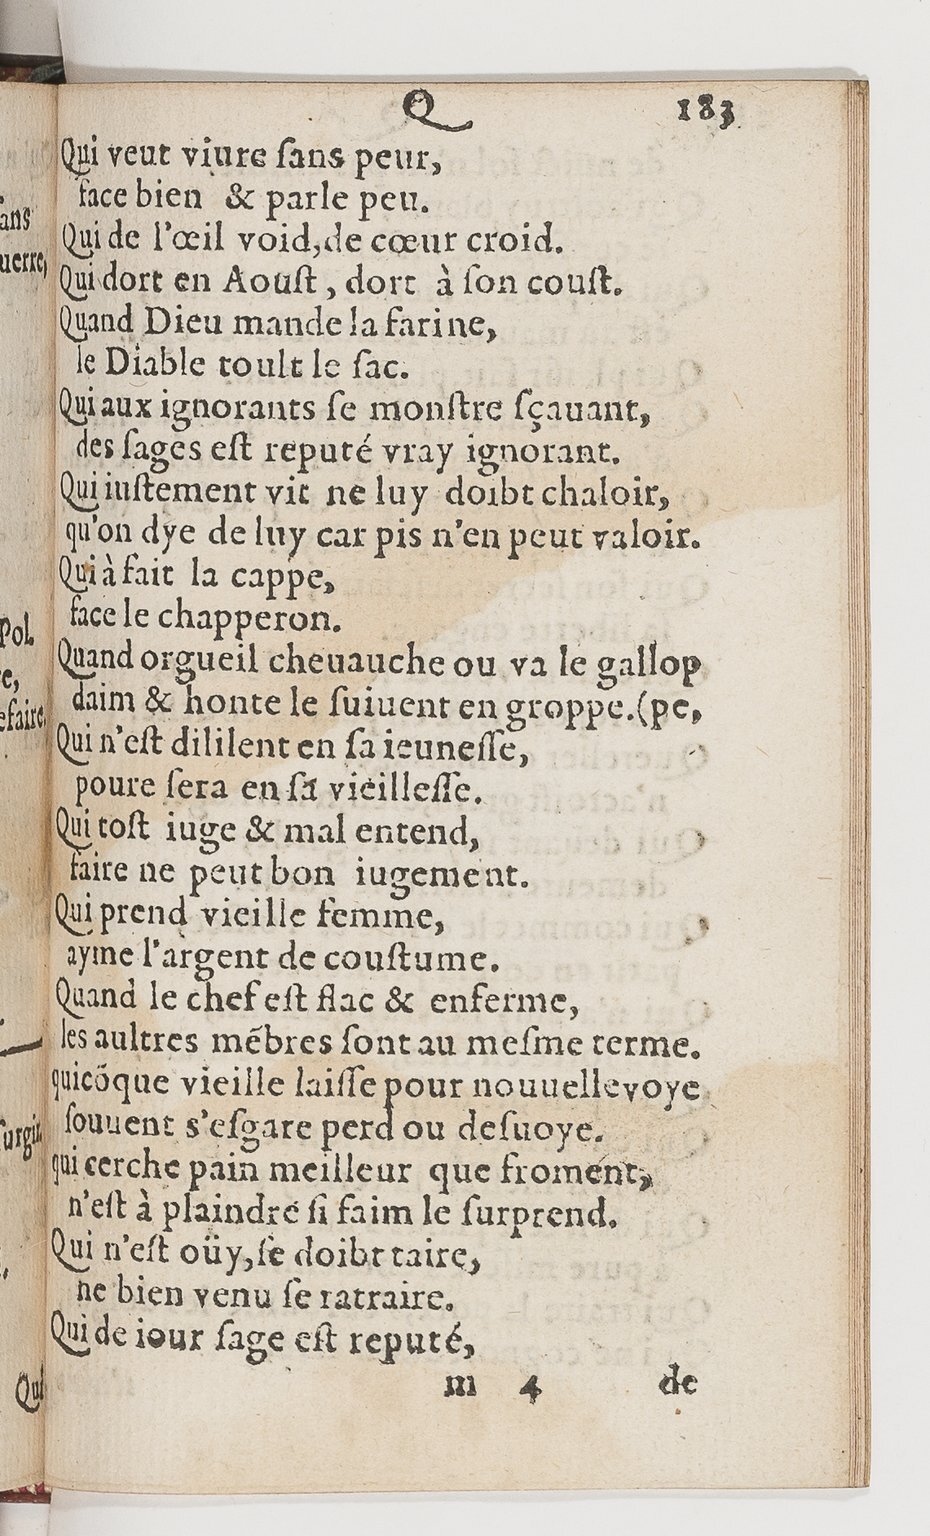 Q 183
Qui veut viure ſans peur,
face bien & parle peu.
Qui de l'œil void, de cœur croid.
Qui dort en Aouſt, dort à ſon couſt.
Quand Dieu mande la farine,
le Diable toult le ſac.
Qui aux ignorants ſe monſtre ſçauant,
des ſages eſt reputé vray ignorant.
Qui iuſtement vit ne luy doibt chaloir,
qu'on dye de luy car pis n'en peut valoir.
Qui à fait la cappe,
face le chapperon.
Quand orgueil cheuauche ou va le gallop
daim & honte le ſuiuent en groppe.(pe,
Qui n'eſt dililent en ſa ieuneſſe,
poure ſera en ſa vieilleſſe.
Qui toſt iuge & mal entend,
faire ne peut bon iugement.
Qui prend vieille femme,
ayme l'argent de couſtume.
Quand le chef eſt flac & enferme,
les aultres mẽbres ſont au meſme terme.
quicõque vieille laiſſe pour nouuelle voye
ſouuent s'eſgare perd ou deſuoye.
qui cerche pain meilleur que froment,
n'eſt à plaindre ſi faim le ſurprend.
Qui n'eſt oüy, ſe doibt taire,
ne bien venu ſe ratraire.
Qui de iour ſage eſt reputé,
m 4 de